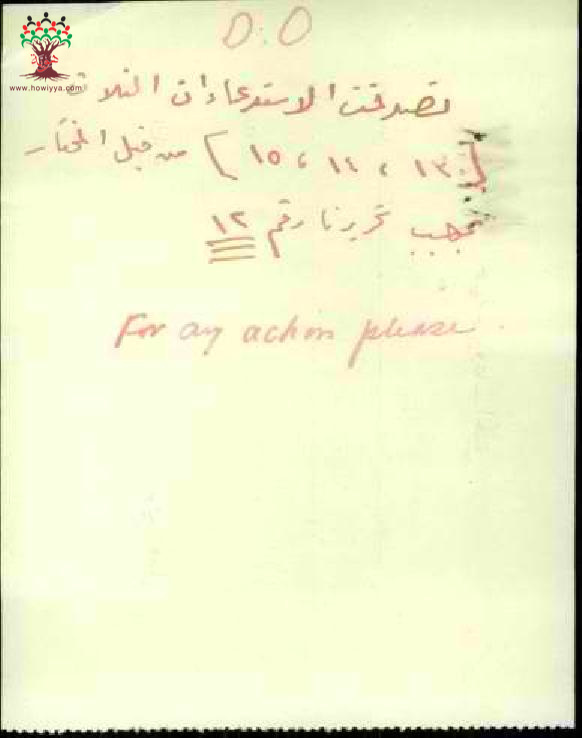 D.O
www.howiyya.com
تصدقت الاستدعاءات الثلاث
[١٣ ، ١٤ ، ١٥] من قبل المختار
بموجب تحريرنا رقم ١٢
For any action please